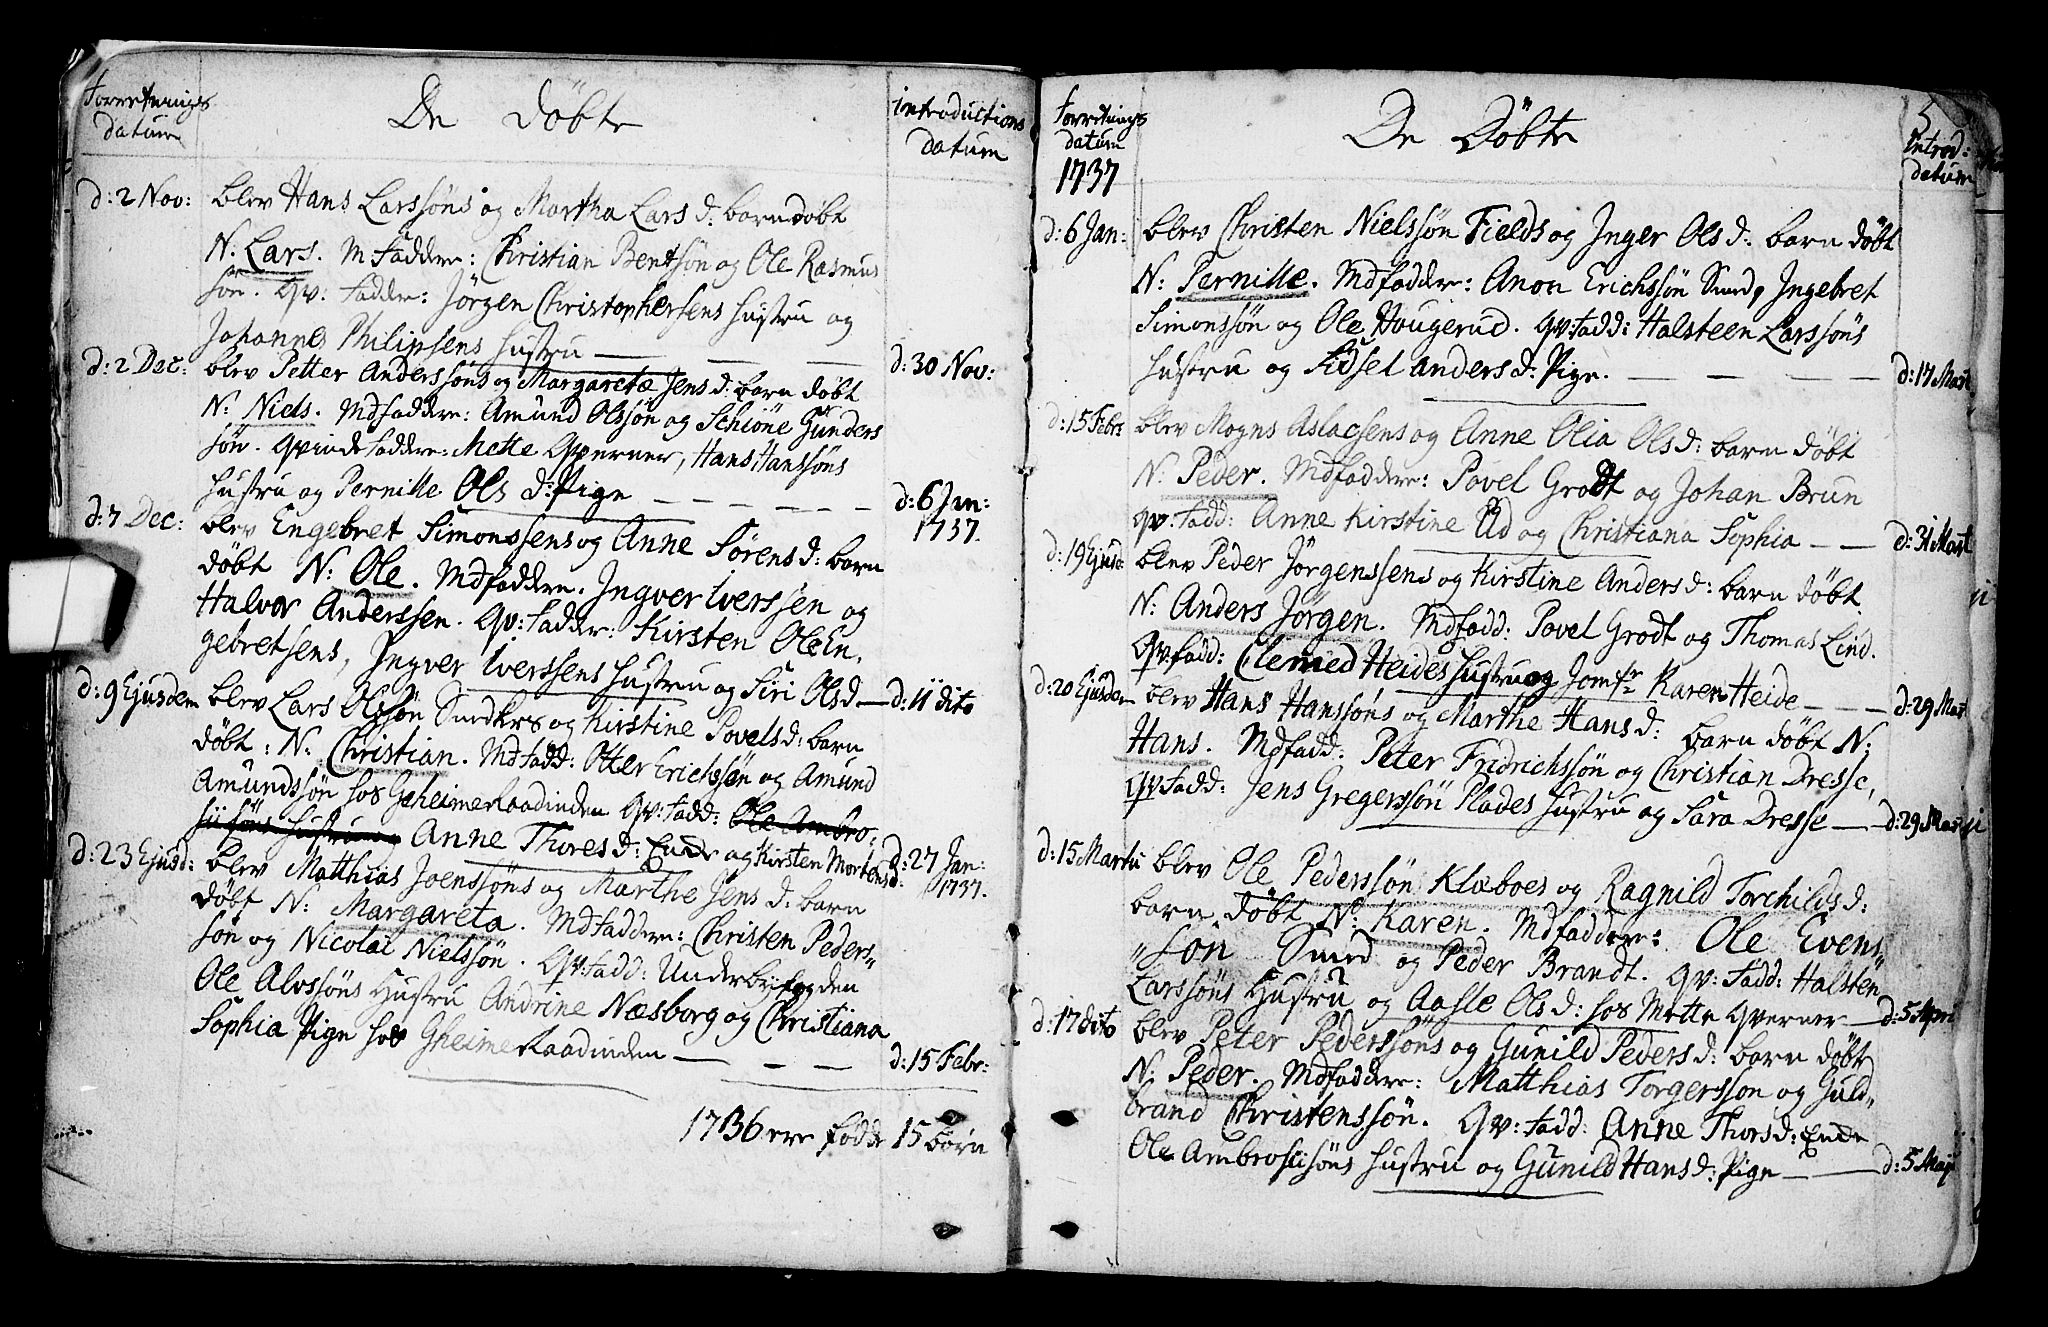 Forretnings
datum
De Döbte
introductions
datum
d: 2 Nov: blev Hans Larssöns og Martha Lars d: barn döbt
N: Lars. M Faddere: Christian Bentsön og Ole Rasmus
sön. Qv: Fadder: Jörgen Christophersens Hustru og
Johannes Philipsens Hustru — — — d: 30 Nov:
d: 2 Dec: blev Petter Anderssöns og Margaretæ Jens d: barn döbt
N: Niels. Mdfaddere: Amund Olssön og Schiöne Gunders
sön. Qvinde Faddere: Mette Qverner, Hans Hanssöns
Hustru og Pernille Ols d: Pige — — — — — d: 6 Jan:
1737.
d: 7 Dec: blev Engebret Simonssens og Anne Sörens d: barn
döbt N: Ole. Mdfaddere. Ingver Iverssen og
Halvor Anderssen. Qv: Fadder: Kirsten Ole En,
gebretsens, Ingver Iverssens Hustru og Siri Olsd — d: 11 dito
d: 9 Ejusdem blev Lars Olssön Smdkrs og Kirstine Povels d: barn
döbt: N: Christian. Mdfadd: Otter Erichssön og Amund
Amundssön hos Geheime Raadinden Qv: Fadd: Ole Ambro:
sii söns Hustru Anne Thores d: Ende og Kirsten Mortens d: d: 27 Jan:
1737.
d: 23 Ejusd: blev Matthias Joenssöns og Marthe Jens d: barn
döbt N: Margareta. Mdfaddere: Christen Peders„
sön og Nicolai Nielssön. Qv: Fadd: Underbyfogden
Ole Alvssöns Hustru Andrine Næsborg og Christiana
Sophia Pige hos Gheime Raadinden — — — d: 15 Febr:
1736 ere födde 15 börn
5
Forretnings
datum
1737
De Döbte
Introd:
datum
d: 6 Jan: blev Christen Nielssön Fields og Inger Ols d: barn döbt
N: Pernille. Mdfaddere: Anon Erichssön Smed, Ingebret
Simonssön og Ole Hougerud. Qv: Fadd: Halsteen Larssöns
Hustru og Sidsel Anders d: Pige. — — — — d: 17 Mart
d: 15 Febr: blev Mogns Aslacsens og Anne Olia Ols d: barn döbt
N: Peder. Mdfaddere: Povel Grodt og Johan Brun
Qv: Fadd: Anne Kirstine Ud og Christiana Sophia — — d: 31 Mart
d: 19 Ejusd: blev Peder Jörgenssens og Kirstine Anders d: barn döbt
N: Anders Jörgen. Mdfadd: Povel Grodt og Thomas Lind.
Qv: fadd: Clemed Heides Hustru og Jomfr Karen Heide — — — d: 29 Mar
d: 20 Ejusdem blev Hans Hanssöns og Marthe Hans d: barn döbt N:
Hans. Mdfadd: Peter Fridrichssön og Christian Dresse,
Qv: Fadd: Jens Gregerssön Plades Hustru og Sara Dresse — — d: 29 Martii
d: 15 Martii blev Ole Pederssön Klæboes og Ragnild Torchilds d:
barn döbt N: Karen. Mdfaddere: Ole Evens„
„sön Smed og Peder Brandt. Qv: Fadd: Halsten
Larssöns Hustru og Aasle Ols d: hos Mette Qverner — d: 5 Apri
d: 17 dito blev Peter Pederssöns og Gunild Peders d: barn döbt
N: Peder. Mdfaddere: Matthias Torgerssön og Guld„
brand Christenssön. Qv: Fadd: Anne Thors d: Ende
Ole Ambrosiisöns Hustru og Gunild Hans d: Pige — — d: 5 Maji